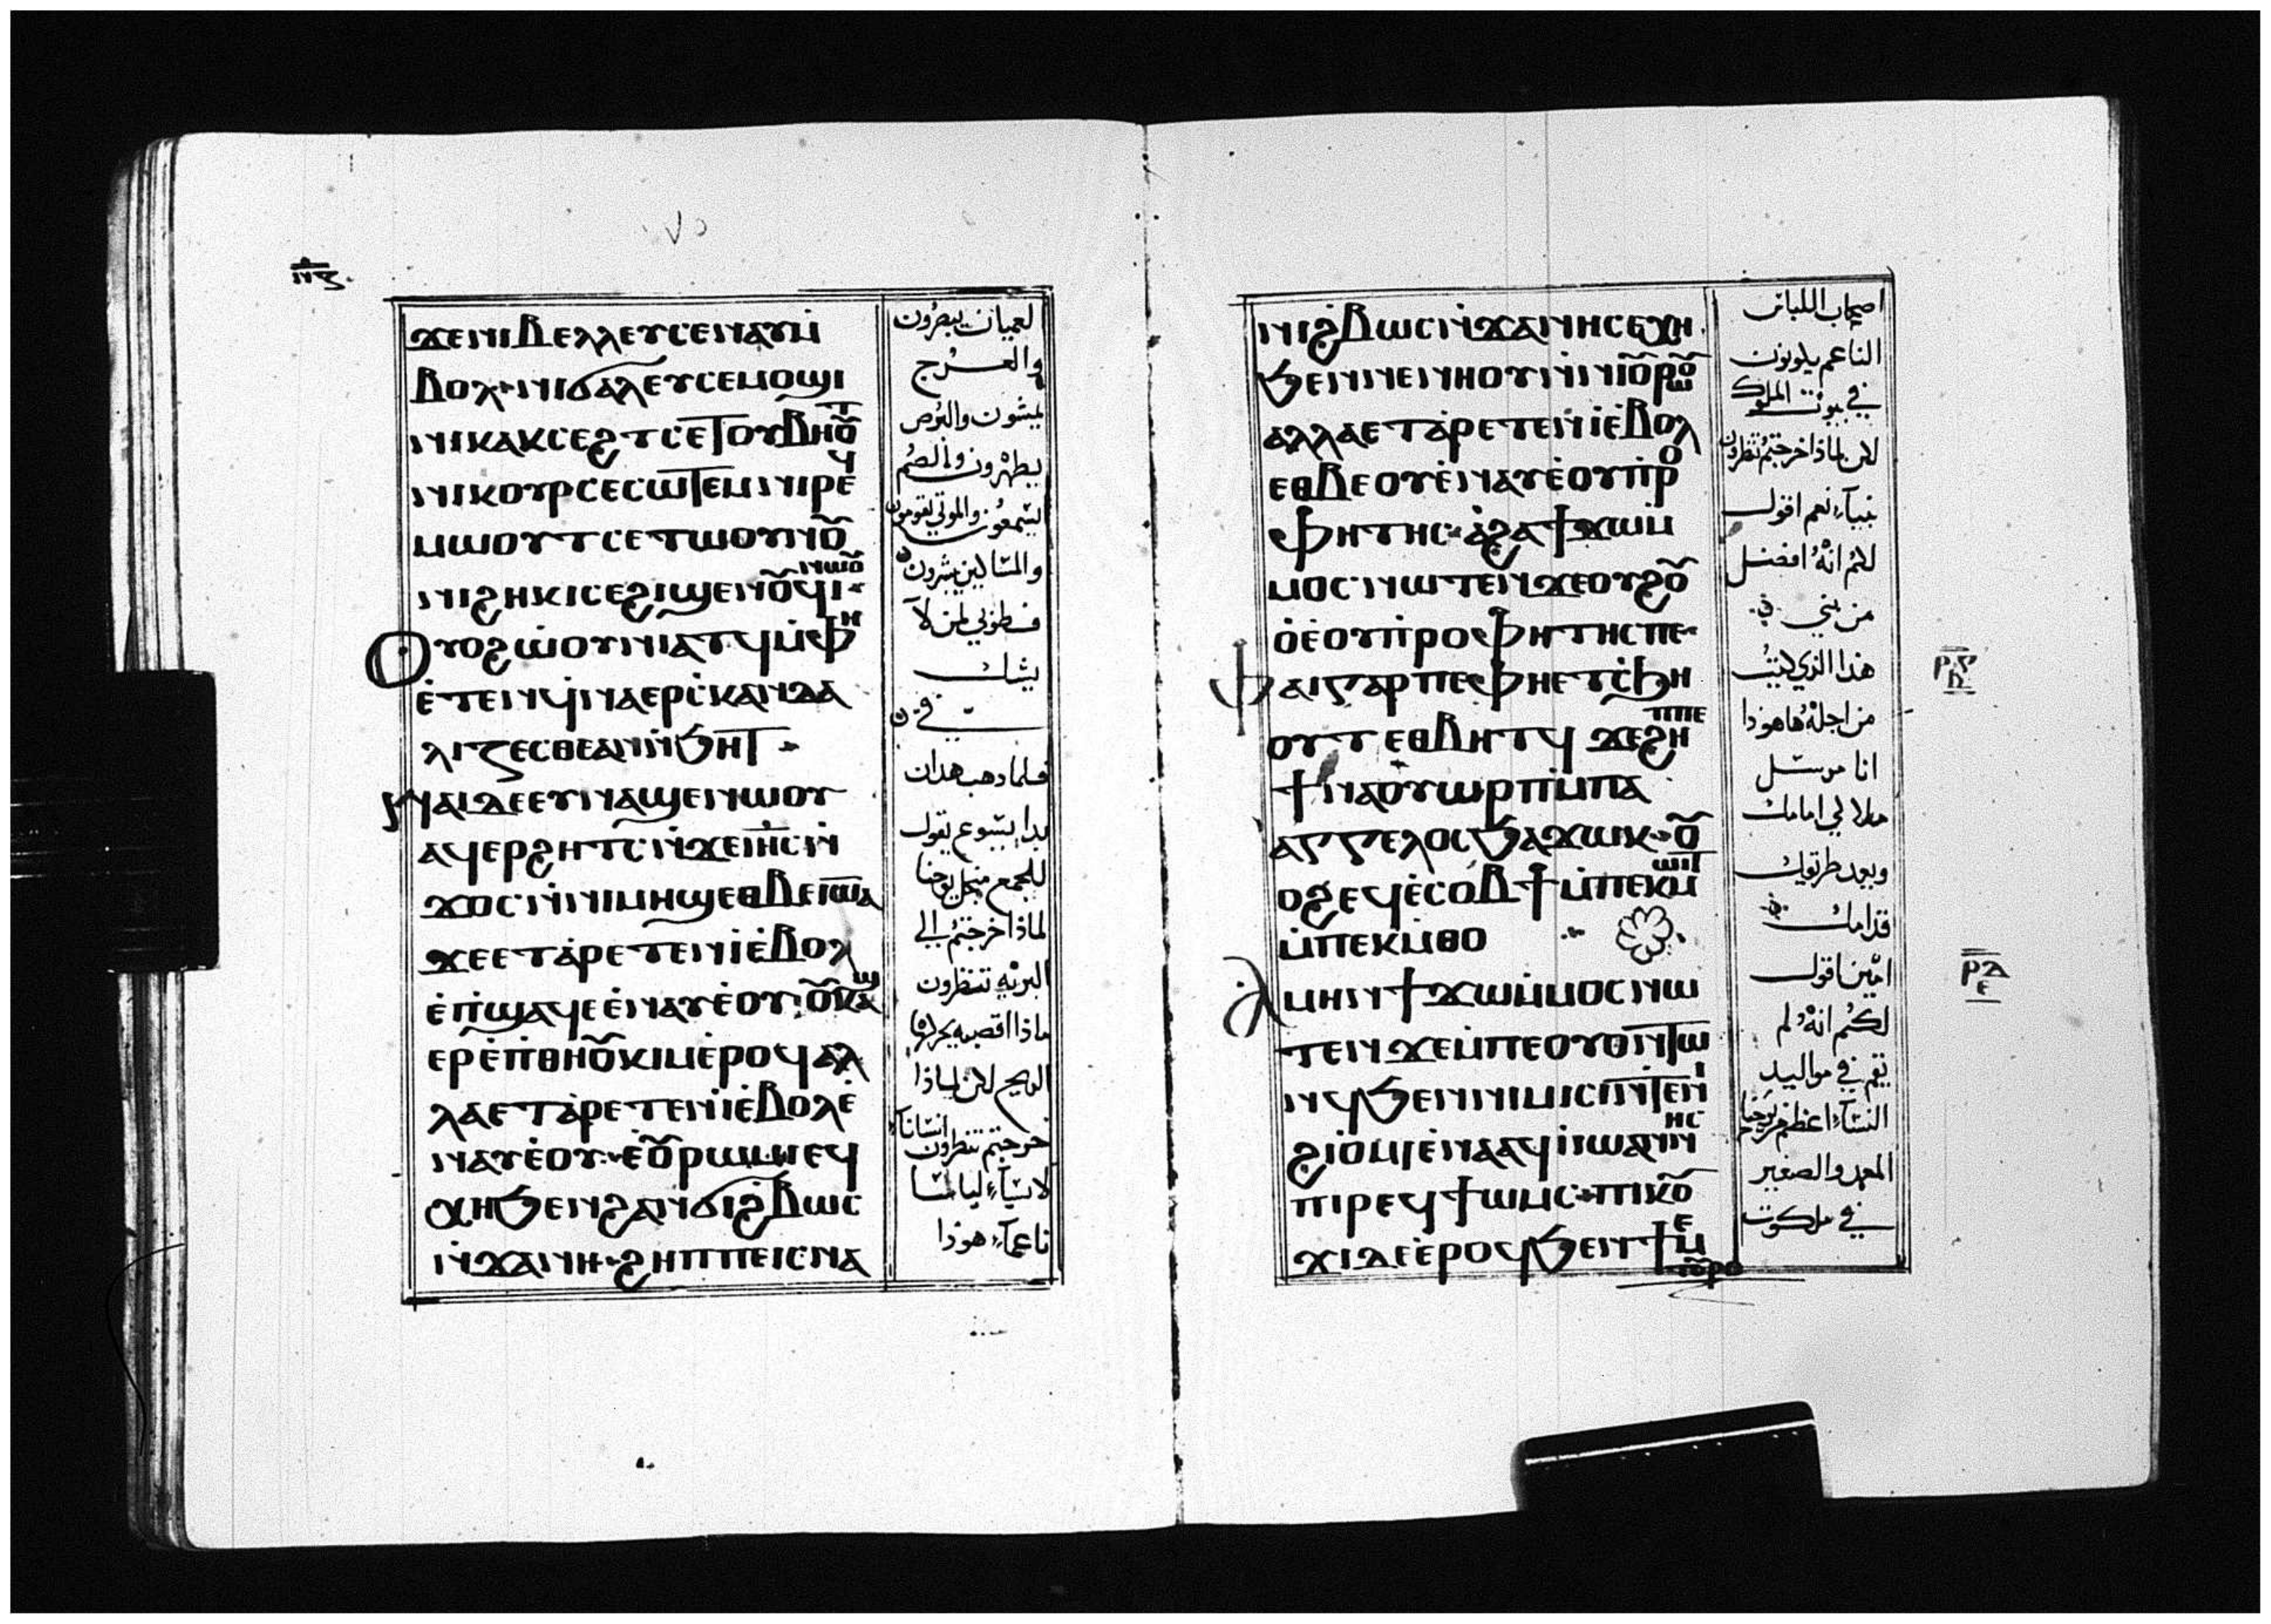 ⲛ̅ⲍ
٧٥
ϫⲉⲛⲓⲃⲉⲗⲗⲉⲩⲥⲉⲛⲁⲩⲙ̇
ⲃⲟⲗ·ⲛⲓϭⲁⲗⲉⲩⲥⲉⲙⲟϣⲓ
ⲛⲓⲕⲁⲕⲥⲉϩⲧⲥⲉⲧⲟⲩⲃⲏⲟ̅ⲧ
ⲛⲓⲕⲟⲩⲣⲥⲉⲥⲱⲧⲉⲙⲛⲓⲣⲉϥ
ⲙⲱⲟⲩⲧⲥⲉⲧⲱⲟⲩⲛⲟ̅
ⲛⲓϩⲏⲕⲓⲥⲉϩⲓϣⲉⲛⲟ̅ϥⲓ·ⲛⲱⲟ̅
ⲟⲩⲟϩⲱ̇ⲟⲩⲛⲓⲁⲧϥⲙ̇ⲫⲏ
ⲉ̇ⲧⲉⲛϥ̇ⲛⲁⲉⲣⲥ̇ⲕⲁⲛⲇⲁ
ⲗⲓⲍⲉⲥⲑⲉⲁⲛⲛ̇ϧⲏⲧ·
ⲛⲁⲓⲇⲉⲉⲩⲛⲁϣⲉⲛⲱⲟⲩ
ⲁϥⲉⲣϩⲏⲧⲥ·ⲛ̇ϫⲉⲓⲏ̅ⲥⲛ̇
ϫⲟⲥ·ⲛ̇ⲛⲓⲙⲏϣⲉⲑⲃⲉⲓⲱ̅ⲁ
ϫⲉⲉⲧⲁ̇ⲣⲉⲧⲉⲛⲓ̇ⲉ̇ⲃⲟⲗ
ⲉ̇ⲡ̇ϣⲁϥⲉⲉ̇ⲛⲁⲩⲉ̇ⲟⲩ·ⲟ̅ⲕⲁϣ
ⲉⲣⲉ̇ⲡ̇ⲑⲏⲟ̅ⲕⲓⲙⲉ̇ⲣⲟϥⲁⲗ
ⲗⲁⲉⲧⲁ̇ⲣⲉⲧⲉⲛⲓ̇ⲉ̇ⲃⲟⲗⲉ̇
ⲛⲁⲩⲉ̇ⲟⲩ·ⲉ̇ⲟ̅ⲣⲱⲙⲓⲉϥ
ⲭⲏϧⲉⲛϩⲁⲛϭⲓϩⲃⲱⲥ
ⲛ̇ϫⲁⲛⲏ·ϩⲏⲡⲡⲉⲓⲥⲛⲁ
لعميان يبصرون
والعرج
يمشون والبرص
يطهرون والصُم
يسمعون والموتي يقومون
والمساكين يبشرون
فطوبي لمن لا
يشك
في
فلما ذهب هذان
بدا يسوع يقول
للجمع من اجل يوحنا
لماذا خرجتم الي
البريه تنظرون
ماذا اقصبه يحركها
الريح لكن لماذا
خرجتم تنظرون انسانا
لابسآء لباسا
ناعمآء هوذا
ⲛⲓϩⲃⲱⲥⲛ̇ϫⲁⲛⲏⲥⲉⲭⲏ
ϧⲉⲛⲛⲉⲛⲏⲟⲩⲛ̇ⲛⲓⲟ̅ⲣⲱⲟ̅
ⲁⲗⲗⲁⲉⲧⲁ̇ⲣⲉⲧⲉⲛⲓ̇ⲉ̇ⲃⲟⲗ
ⲉⲑⲃⲉⲟⲩⲉ̇ⲛⲁⲩⲉ̇ⲟⲩⲡ̇ⲣⲟ
ⲫⲏⲧⲏⲥ·ⲁ̇ϩⲁϯϫⲱⲙ̇
ⲙⲟⲥ·ⲛⲱⲧⲉⲛϫⲉⲟⲩϩⲟ̅
ⲟ̇ⲉ̇ⲟⲩⲡ̇ⲣⲟⲫⲏⲧⲏⲥⲡⲉ·
ⲫⲁⲓⲅⲁⲣⲡⲉⲫⲏⲉⲧⲥ̇ϧⲏ
ⲟⲩⲧⲉⲑⲃⲏⲧϥϫⲉϩⲏⲡⲡⲉ
ϯⲛⲁⲟⲩⲱⲣⲡⲙ̇ⲡⲁ
ⲁⲅⲅⲉⲗⲟⲥϧⲁϫⲱⲕ·ⲟ̅
ⲟϩⲉϥⲉ̇ⲥⲟⲃϯⲙ̇ⲡⲉⲕⲙⲱⲓⲧ
ⲙ̇ⲡⲉⲕⲙ̇ⲑⲟ
ⲁⲙⲏⲛϯϫⲱⲙ̇ⲙⲟⲥⲛⲱ
ⲧⲉⲛϫⲉⲙ̇ⲡⲉⲟⲩⲟⲛⲧⲱ
ⲛϥϧⲉⲛⲛⲓⲙⲓⲥⲓⲛ̇ⲧⲉⲛⲓ
ϩⲓⲟ̇ⲙⲓⲉ̇ⲛⲁⲁϥⲓ̇ⲱⲁⲛⲛⲏⲥ
ⲡⲓⲣⲉϥϯⲱⲙⲥ·ⲡⲓⲕⲟ̅
ϫⲓⲇⲉⲉ̇ⲣⲟϥϧⲉⲛϯⲙⲉ
ⲧⲟ̅ⲣⲟ
اصحاب اللباس
الناعم يكونون
في بيوت الملوك
لكن لماذا خرجتم تنظرون
نبيآء نعم اقول
لكم انهُ افضل
من نبي
هذا الذي كتب
من اجلهُ هاهوذا
انا مرسل
ملاكي امامك
ويعد طريقك
قدامك
امين اقول
لكُم انهُ لم
يقم في مواليد
النسآء اعظم من يوحنا
المعمد والصغير
في ملكوت
ⲣ̅ⲅ
ⲣ̅ⲇ
ⲉ